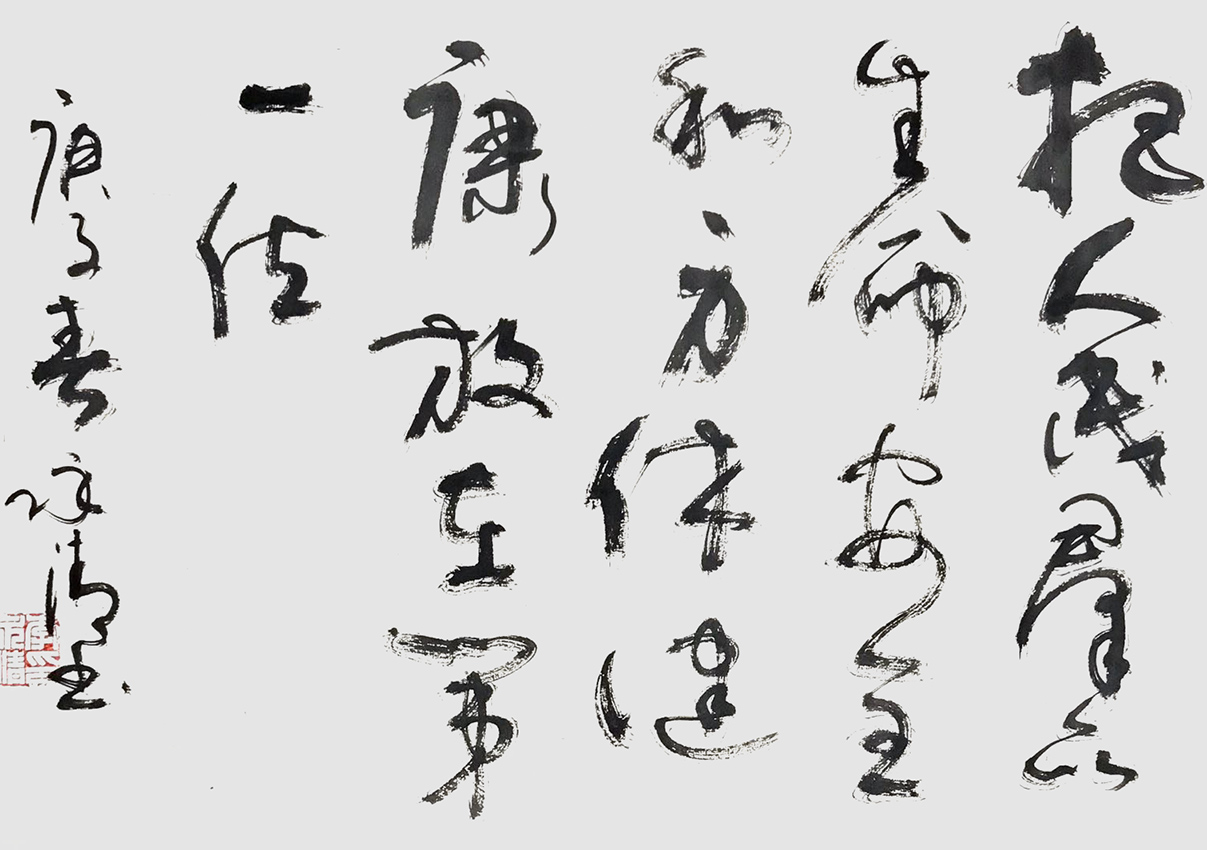 把人民群众
生命安全
和身体健
康放在第
一位
庚子春 清书